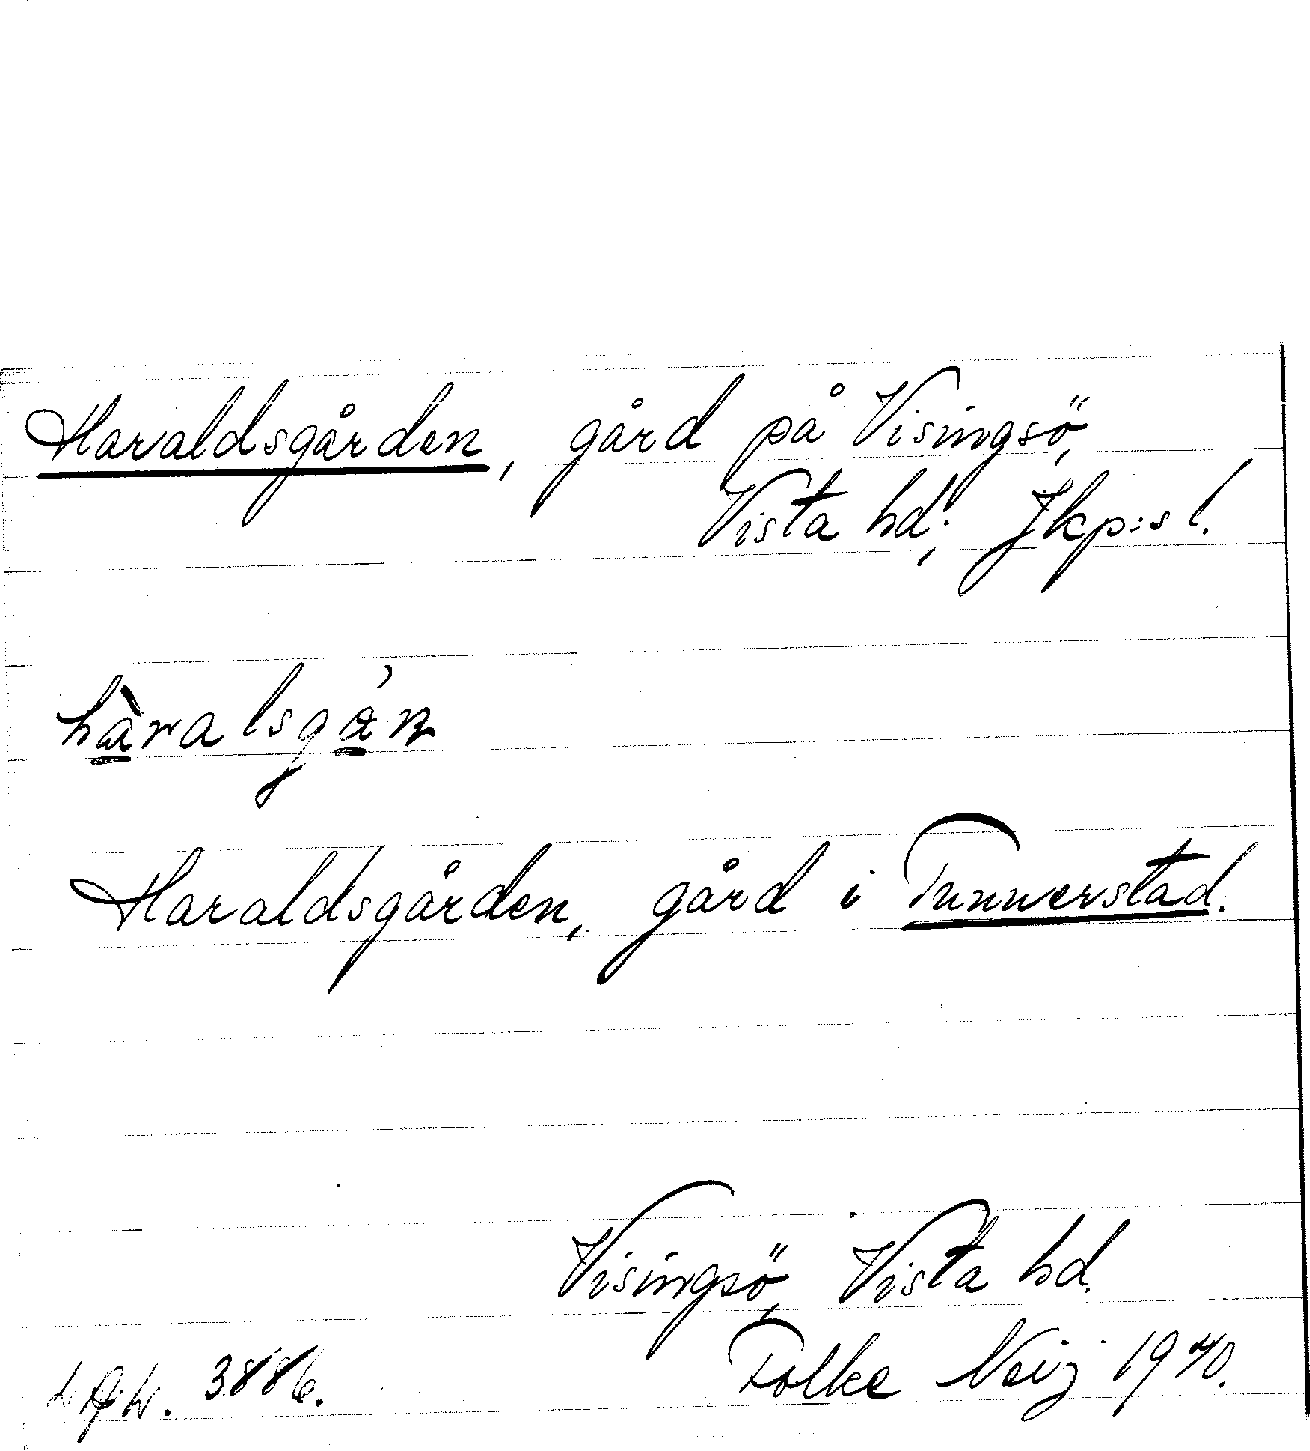 Haraldsgården, gård på Visingsö,
Vista hd; Jkp:s l.
hàralsgán
Haraldsgården, gård i Tunnerstad.
Visingsö, Vista hd.
Folke Neij 1940.
3886.